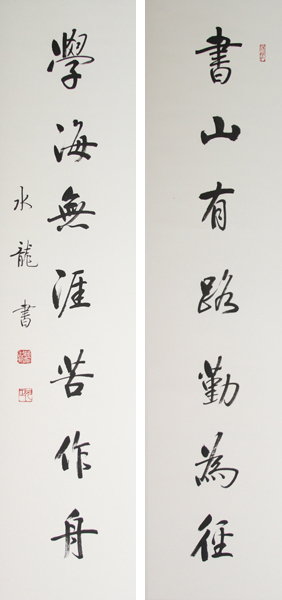 書山有路勤為徑
學海無涯苦作舟
水龍書